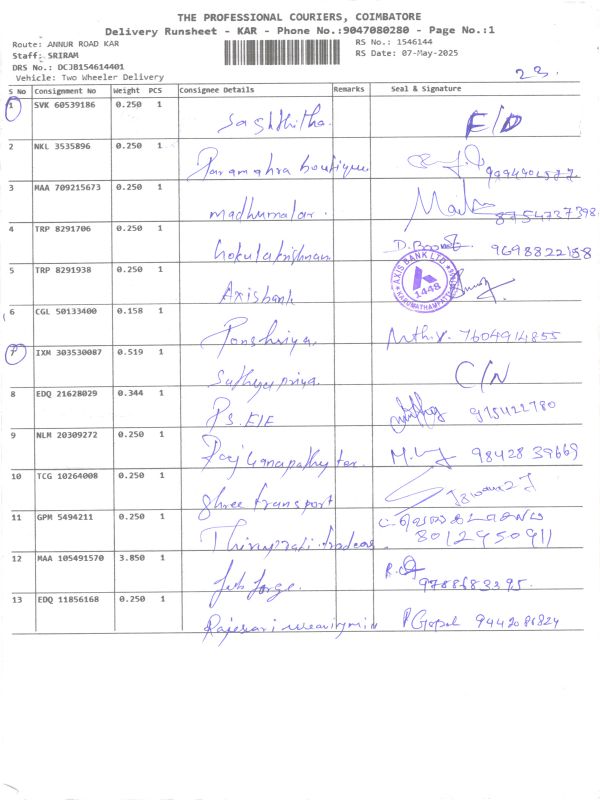 THE PROFESSIONAL COURIERS, COIMBATORE
Delivery Runsheet - KAR - Phone No.:9047080280 - Page No.:1
Route: ANNUR ROAD KAR
RS No.: 1546144
Staff: SRIRAM
RS Date: 07-May-2025
DRS No.: DCJB154614401
Vehicle: Two Wheeler Delivery
23.
S No Consignment No Weight PCS Consignee Details Remarks Seal & Signature
1 SVK 60539186 0.250 1 E/D
2 NKL 3535896 0.250 1 boutique
3 MAA 709215673 0.250 1 madhumalar. 8754737398
4 TRP 8291706 0.250 1 Gokulakrishnan 9698822158
5 TRP 8291938 0.250 1 Axisbank
AXIS BANK LTD
1448
6 CGL 50133400 0.158 1 7604914855
7 IXM 303530087 0.519 1 Sathyapriya. C/N
8 EDQ 21628029 0.344 1 PS. EIE
9 NLM 20309272 0.250 1 Raj Ganapathy tex. 98428 39669
10 TCG 10264008 0.250 1 Shree transport
11 GPM 5494211 0.250 1 8012950911
12 MAA 105491570 3.850 1 forge. 9788683395.
13 EDQ 11856168 0.250 1 Gopal 9442086824